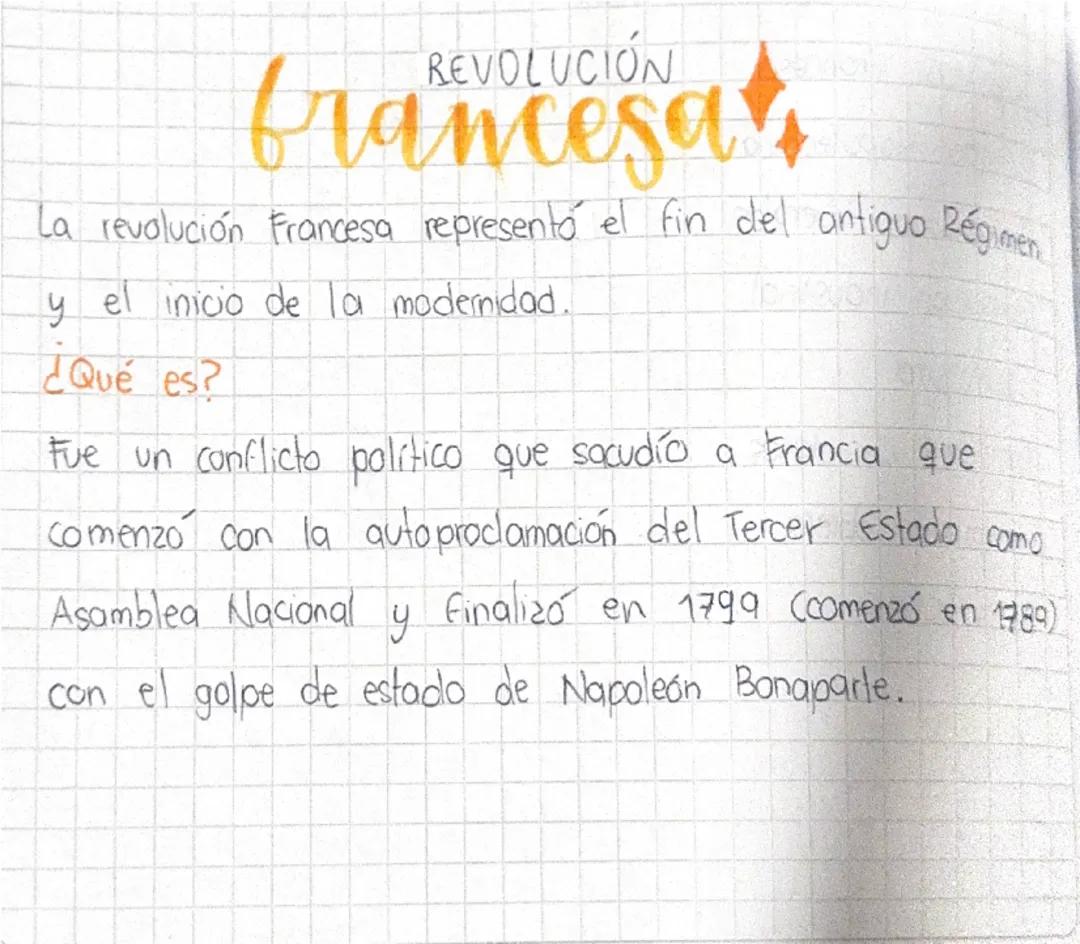 REVOLUCIÓN
francesa
La revolución Francesa representó el fin del antiguo Régimen
y el inicio de la modernidad.
¿Qué es?
Fue un conflicto político que sacudío a Francia que
comenzó con la autoproclamación del Tercer Estado como
Asamblea Nacional y finalizó en 1799 (comenzó en 1789)
con el golpe de estado de Napoleón Bonaparte.